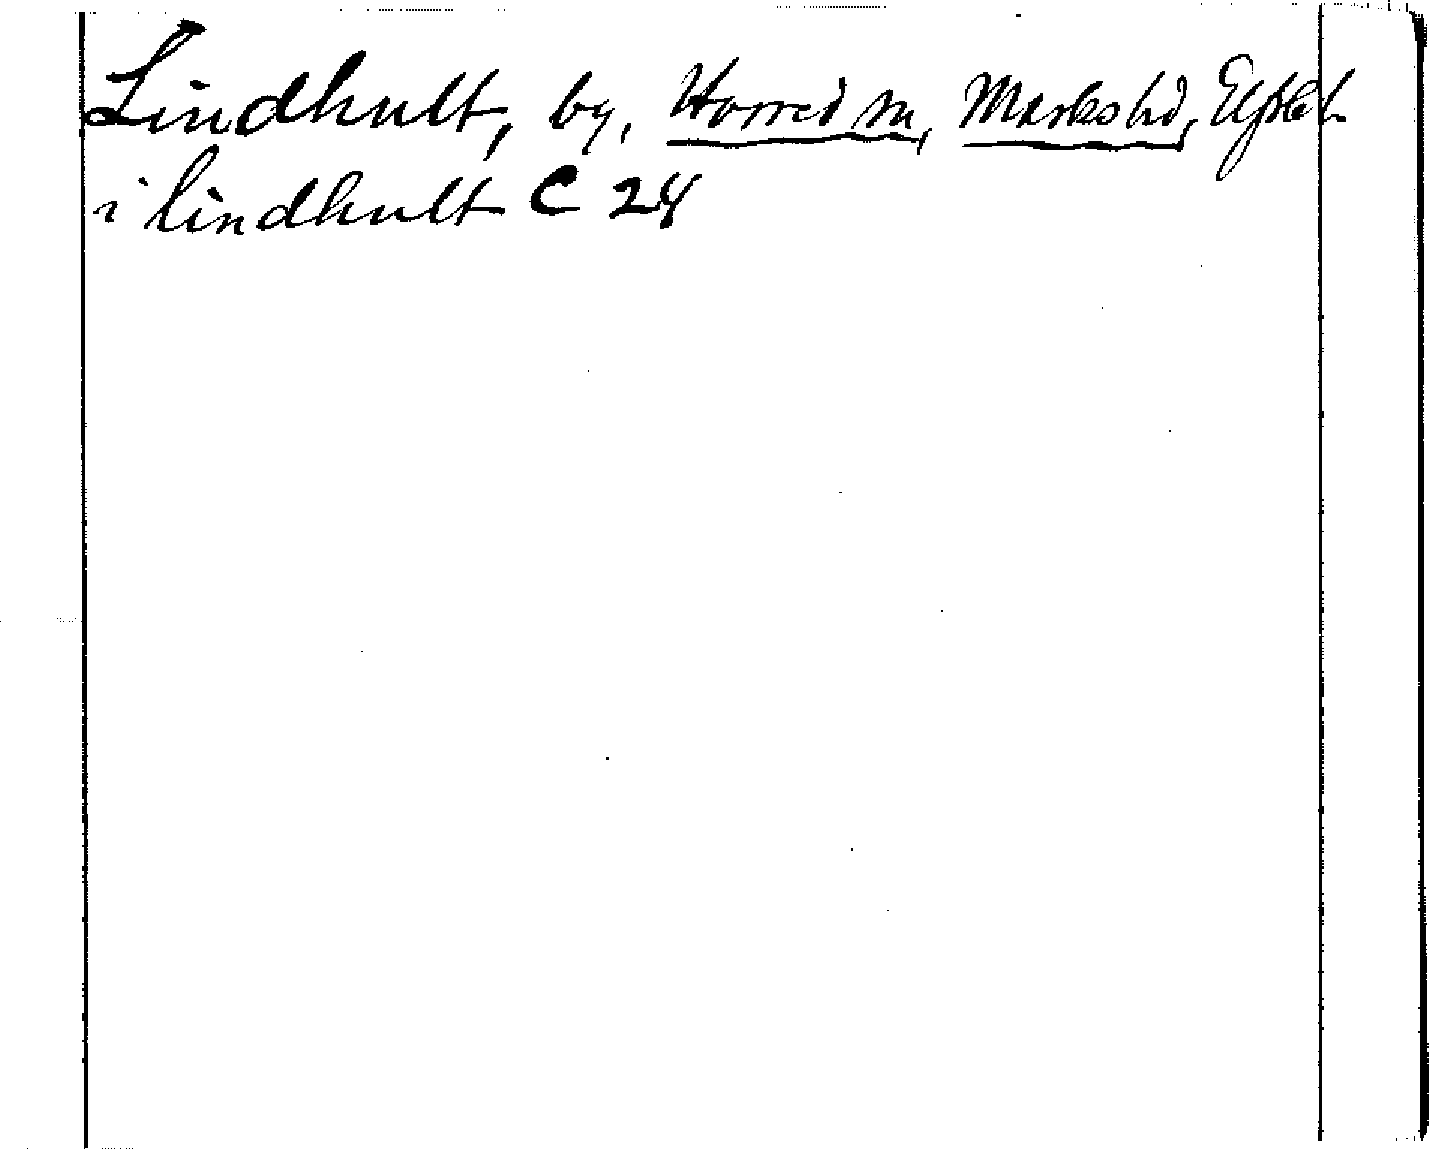 Lindhult, by, Horred sn, Marks hd, Elfsb. l.
i lindhult C 24